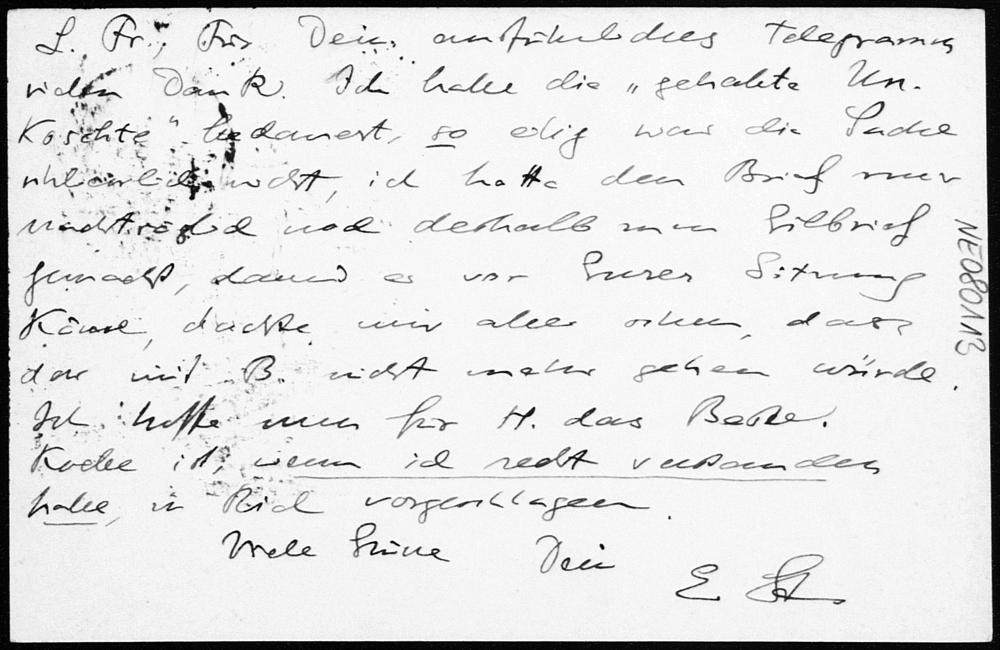 L. Fr., Für Dein ausführliches Telegramm
vielen Dank. Ich habe die „gehabte Un-
koschte" bedauert, so eilig war die Sache
nicht, ich hatte den Brief nur
nachträglich noch deshalb zum Eilbrief
gemacht, damit er vor Eurer Sitzung
käme, dachte mir aber schon, dass
das mit B. nicht mehr gehen würde.
Ich hoffe nun für H. das Beste.
Koche ist, wenn ich recht verstanden
habe, in Kiel vorgeschlagen.
Viele Grüsse Dein
E St.
NE080113